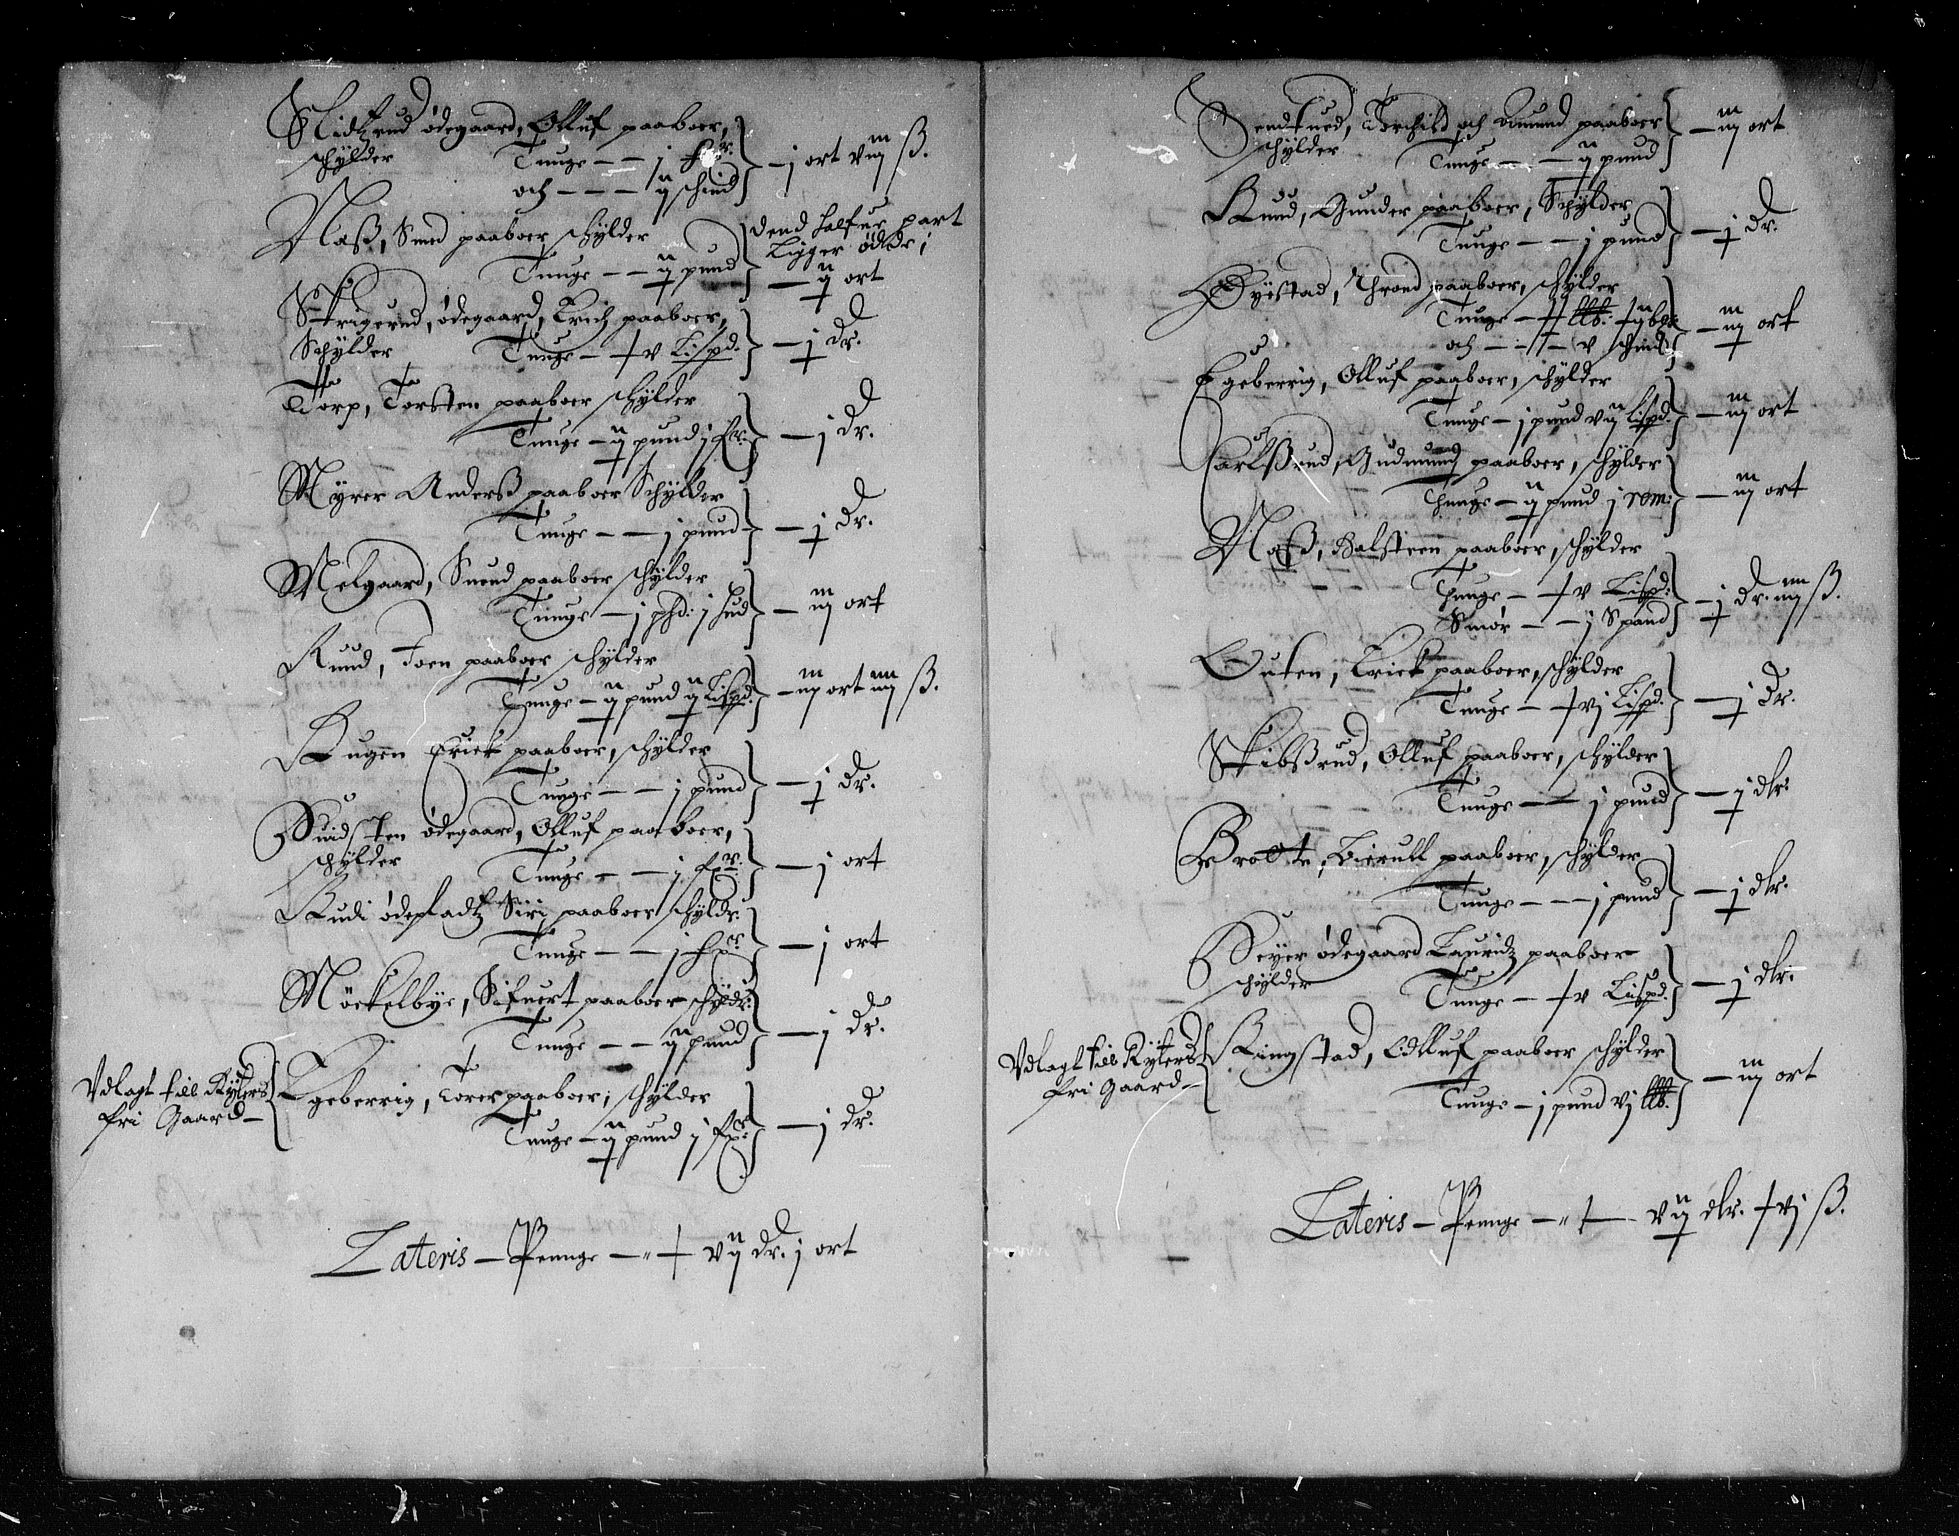 Nidtzrud ødegaard, Olluf paaboer,
schÿlder Tunge – – j
och – – – ij schind – j ort viij ß.
Næß, Smed paaboer schÿlder dend halfue part
Ligger øde;
Tunge – – ij pund – ij ort
Strigerud, ødegaard, Erich paaboer,
Schÿlder Tunge – + v Lispd. – j dr.
Torp, Torsten paaboer schÿlder
Tunge – ij pund j fr: – j dr.
Mÿrer Anderß paaboer Schÿlder
Tunge – – j pund – j dr.
Melgaard, Suend paaboer schÿlder
Tunge – j phd: j hud – iij ort
Ruud, Joen paaboer schÿlder
Tunge – ij pund ij Lispd. – iij ort iiij ß.
Haugen Erick paaboer, schÿlder
Tunge – – j pund – j dr.
Suidsten ødegaard, Olluf paaboer,
schÿlder Tunge – – j fr: – j ort
Rudi ødepladtz Siri paaboer schÿldr:
Tunge – – j fr: – j ort
Möckelbÿe, Sifuert paaboer schÿldr:
Tunge – – ij pund – j dr.
Vdlagt til Rÿters
fri Gaard –
Egeberrig, Torer paaboer, schÿlder
Tunge – ij pund j fr: – j dr.
Lateris – Penge – „ + vij dr. j ort
Sendtued, Torchild och Amund paaboer
schÿlder Tunge – – ij pund – iij ort
Ruud, Gunder paaboer, Schÿlder
Tunge – – j pund – j dr.
Øÿestad, Thrond paaboer, schÿlder
Tunge – + llb: +
och – – – v schind – iij ort
Egeberrig, Olluf paaboer, schÿlder
Tunge – j pund vij Lispd. – iij ort
Carlßrud, Gudmund paaboer, schÿlder
Thunge – ij pund j rem: – iij ort
Næß, Halsteen paaboer, schÿlder
Thunge – + v Lispd:
Smør – – j Spand – j dr. iiij ß.
Outen, Erick paaboer, schÿlder
Tunge – + vj Lispd. – j dr.
Skibßrud, Olluf paaboer, schÿlder
Tunge – – j pund – j dlr.
Brotte, Bierull paaboer, schÿlder
Tunge – – j pund – j dlr.
Seÿer ødegaard Lauridz paaboer
schÿlder Tunge – + v Lispd. – j dlr.
Vdlagt til Rÿters
fri Gaard –
Ringstad, Olluf paaboer schÿlder
Tunge – j pund vj llb. – iij ort
Lateris – Penge – „ + – vij dlr. + vj ß.